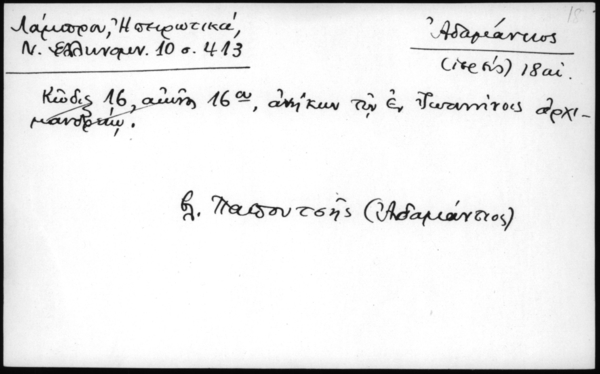 Λάμπρου, Ἠπειρωτικά,
Ν. Ἑλληνομν. 10 σ. 413
Ἀδαμάντιος
(ἱερεύς) 18 αἰ.
18
Κῶδιξ 16, αἰῶνος 16ου, ἀνήκων τῇ ἐν Ἰωαννίνοις ἀρχι-
μανδρείῳ.
βλ. Παπουτσῆς (Ἀδαμάντιος)